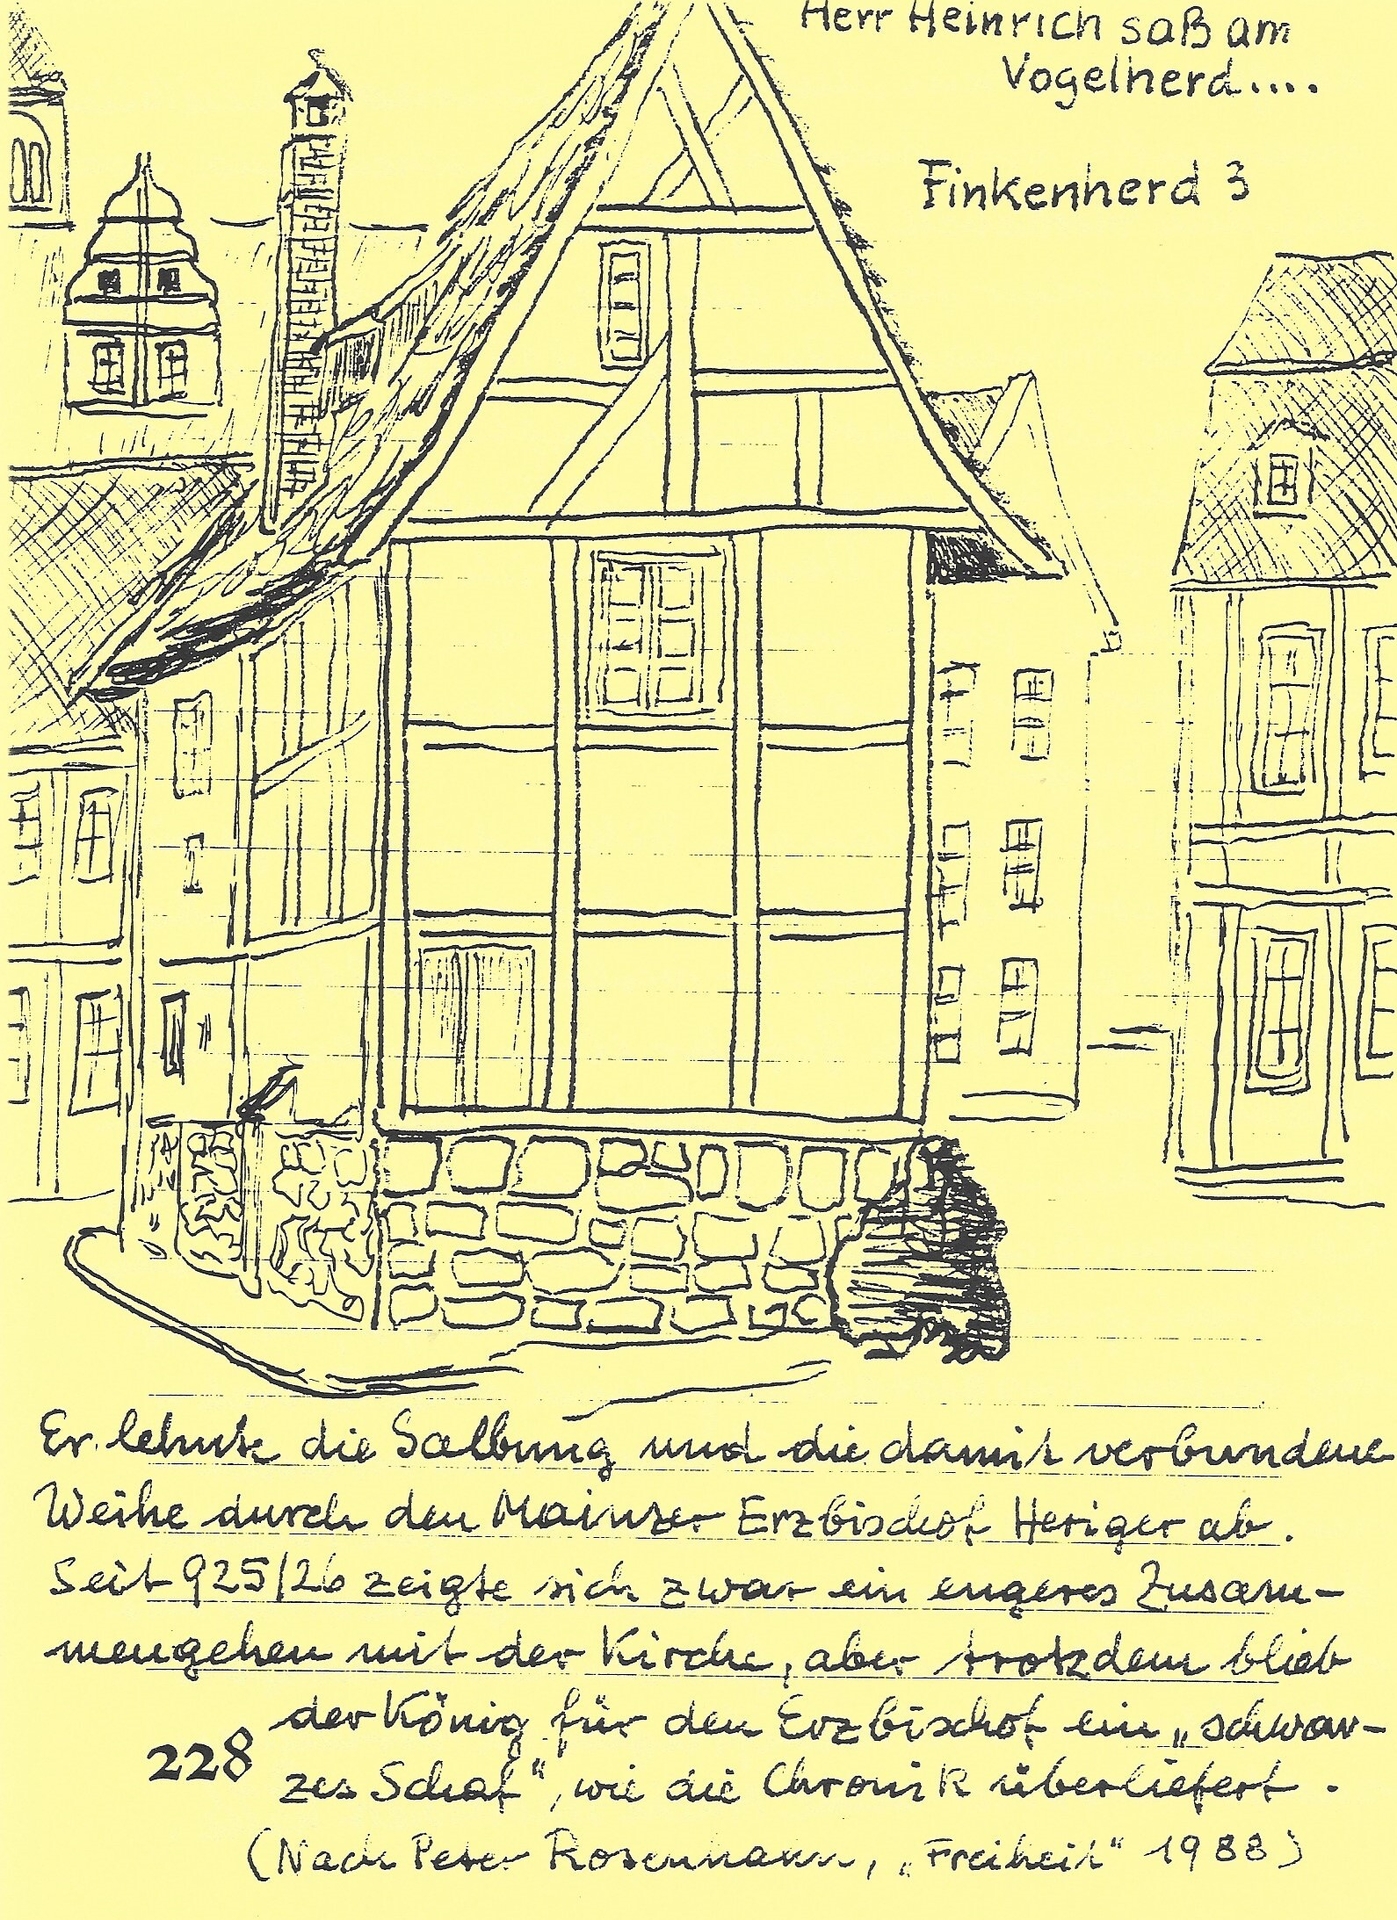 Herr Heinrich saß am
Vogelherd....
Finkenherd 3
Er lehnte die Salbung und die damit verbundene
Weihe durch den Mainzer Erzbischof Heriger ab.
Seit 925/26 zeigte sich zwar ein engeres Zusam-
mengehen mit der Kirche, aber trotzdem blieb
der König für den Erzbischof ein „schwar-
zes Schaf", wie die Chronik überliefert.
228
(Nach Peter Rosenhann, „Freiheit" 1988)